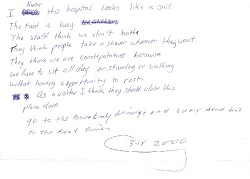 I know this hospital looks like a jail
The food is lousy
The staff think we don't bath
They think people take a shower whenever they want
They think we are constipators because
we have to sit all day or standing or walking
without having opportunity to rest.
As a visitor I think they should close this
place down
go to the
on the Road Review
3-18 2000